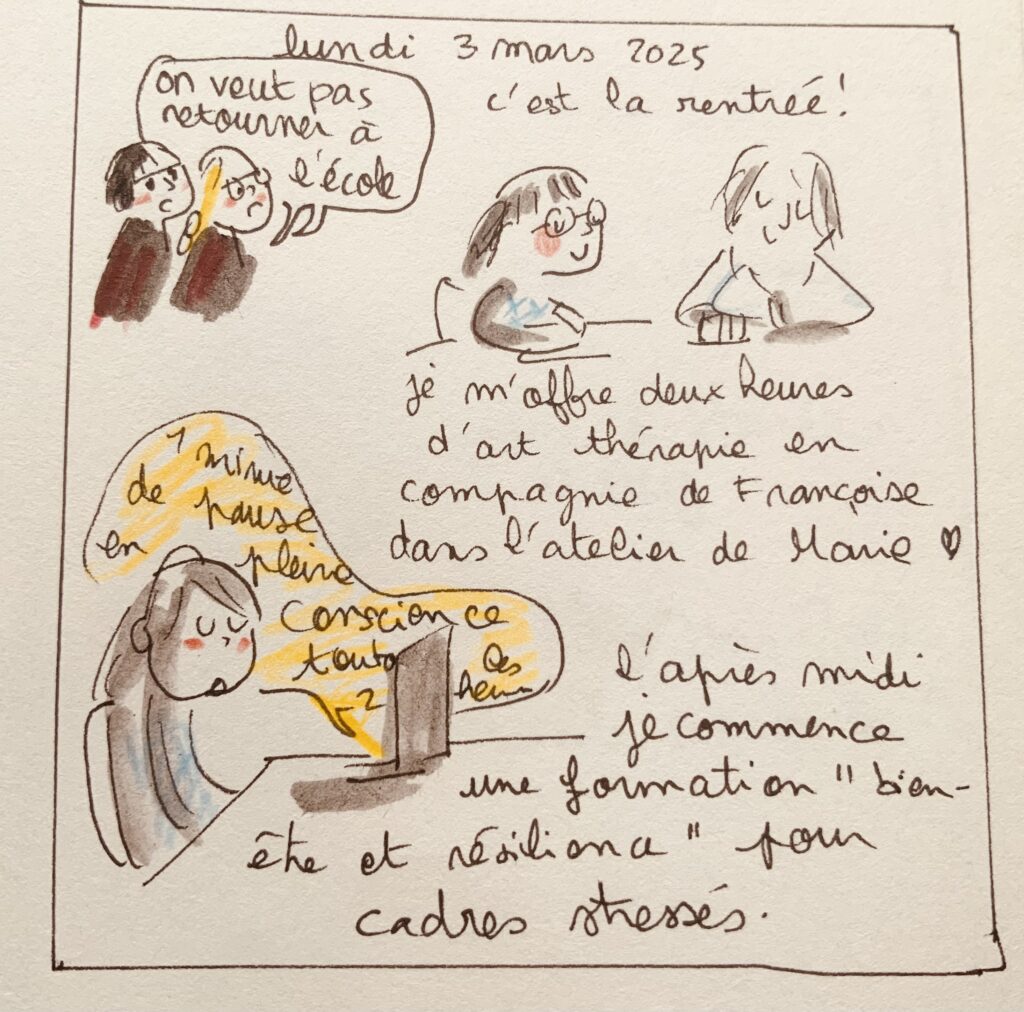 lundi 3 mars 2025
c'est la rentrée!
on veut pas
retourner à
l'école
je m'offre deux heures
d'art thérapie en
compagnie de Françoise
dans l'atelier de Marie ♥
1 minute
de pause
en pleine
conscience
toutes les
2 heures
l'après midi
je commence
une formation "bien-
être et résilience" pour
cadres stressés.